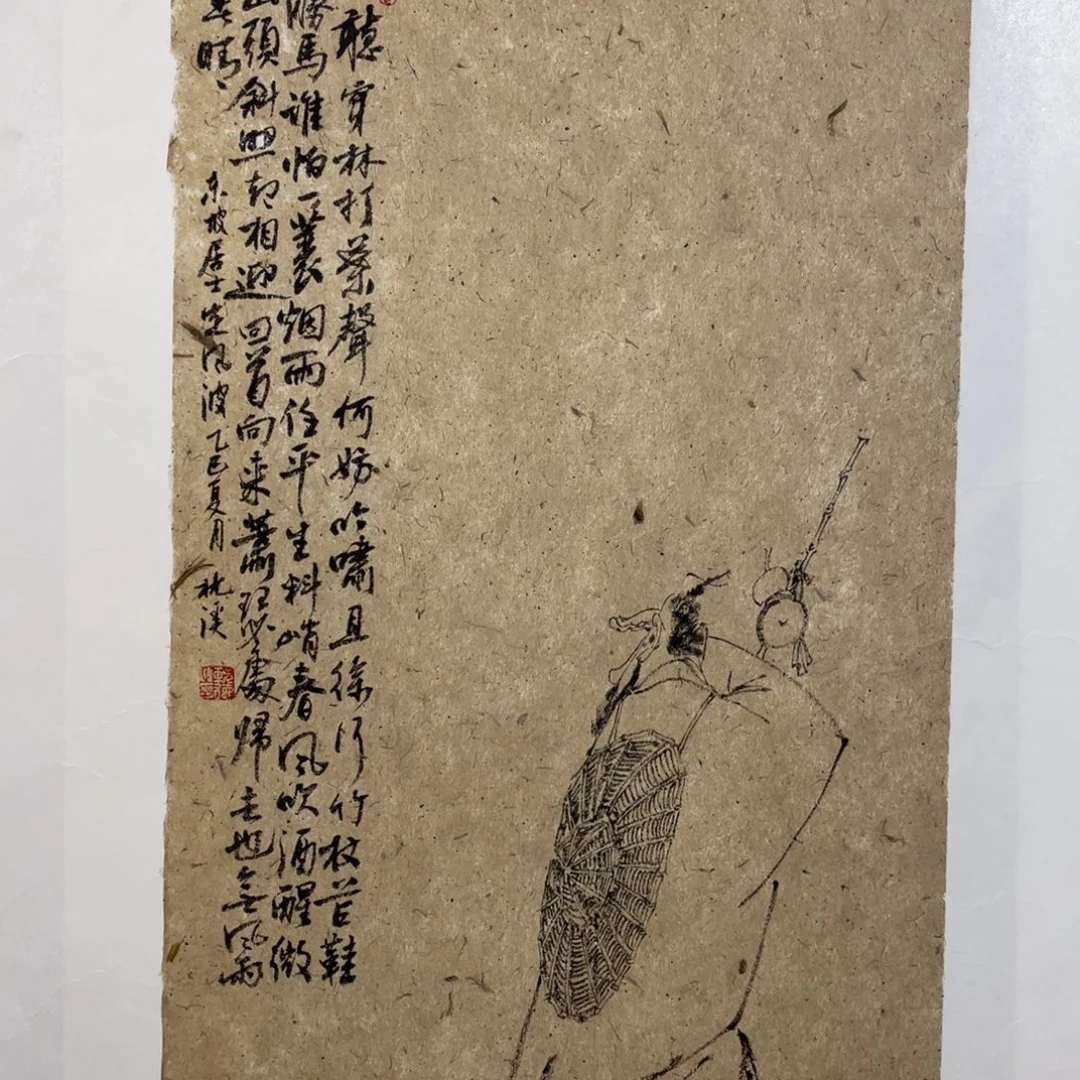 聽穿林打葉聲何妨吟嘯且徐行竹杖芒鞋
勝馬誰怕一蓑烟雨任平生料峭春風吹酒醒微
山頭斜照却相迎回首向来蕭瑟處歸去也無風雨
無晴
东坡居士定风波乙巳夏月